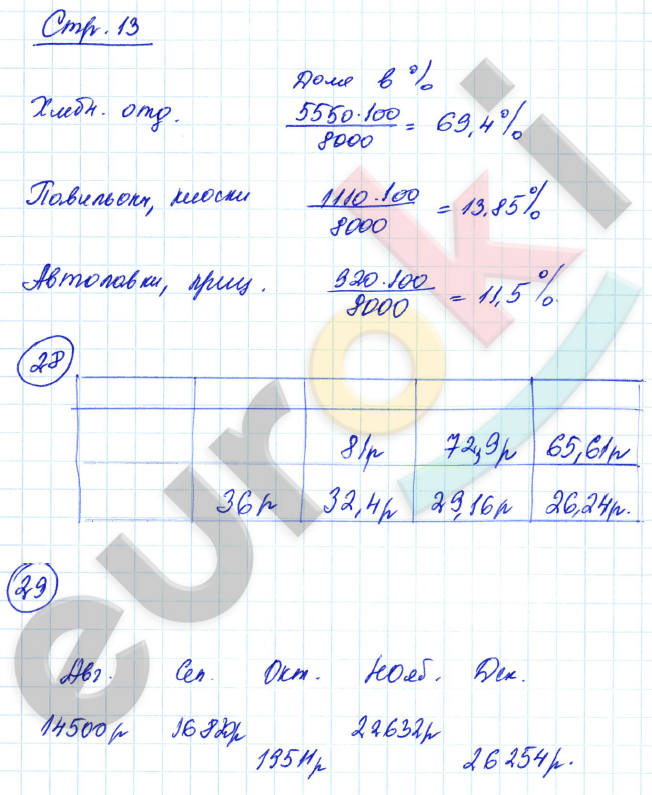 Стр. 13
Доля в %
Хлебн. отд. 5550·100/8000 = 69,4%
Павильоны, киоски 1110·100/8000 = 13.85%
Автолавки,приц. 920·100/8000 = 11,5%.
28
81р 72,9р 65,61р
36р 32,4р 29,16р 26,24р.
29
Авг. Сен. Окт. Нояб. Дек.
14500р 16820р 22632р
19511р 26254р.
euroki